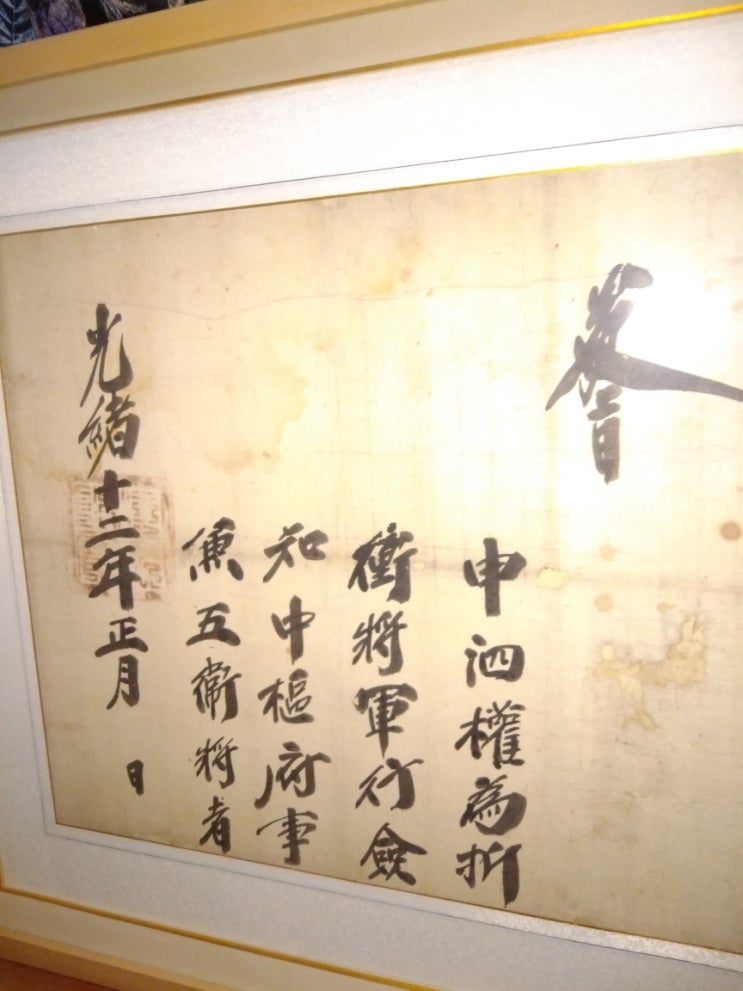 敎旨
申泗權為折
衝將軍行僉
知中樞府事
兼五衛將者
光緒十二年正月 日